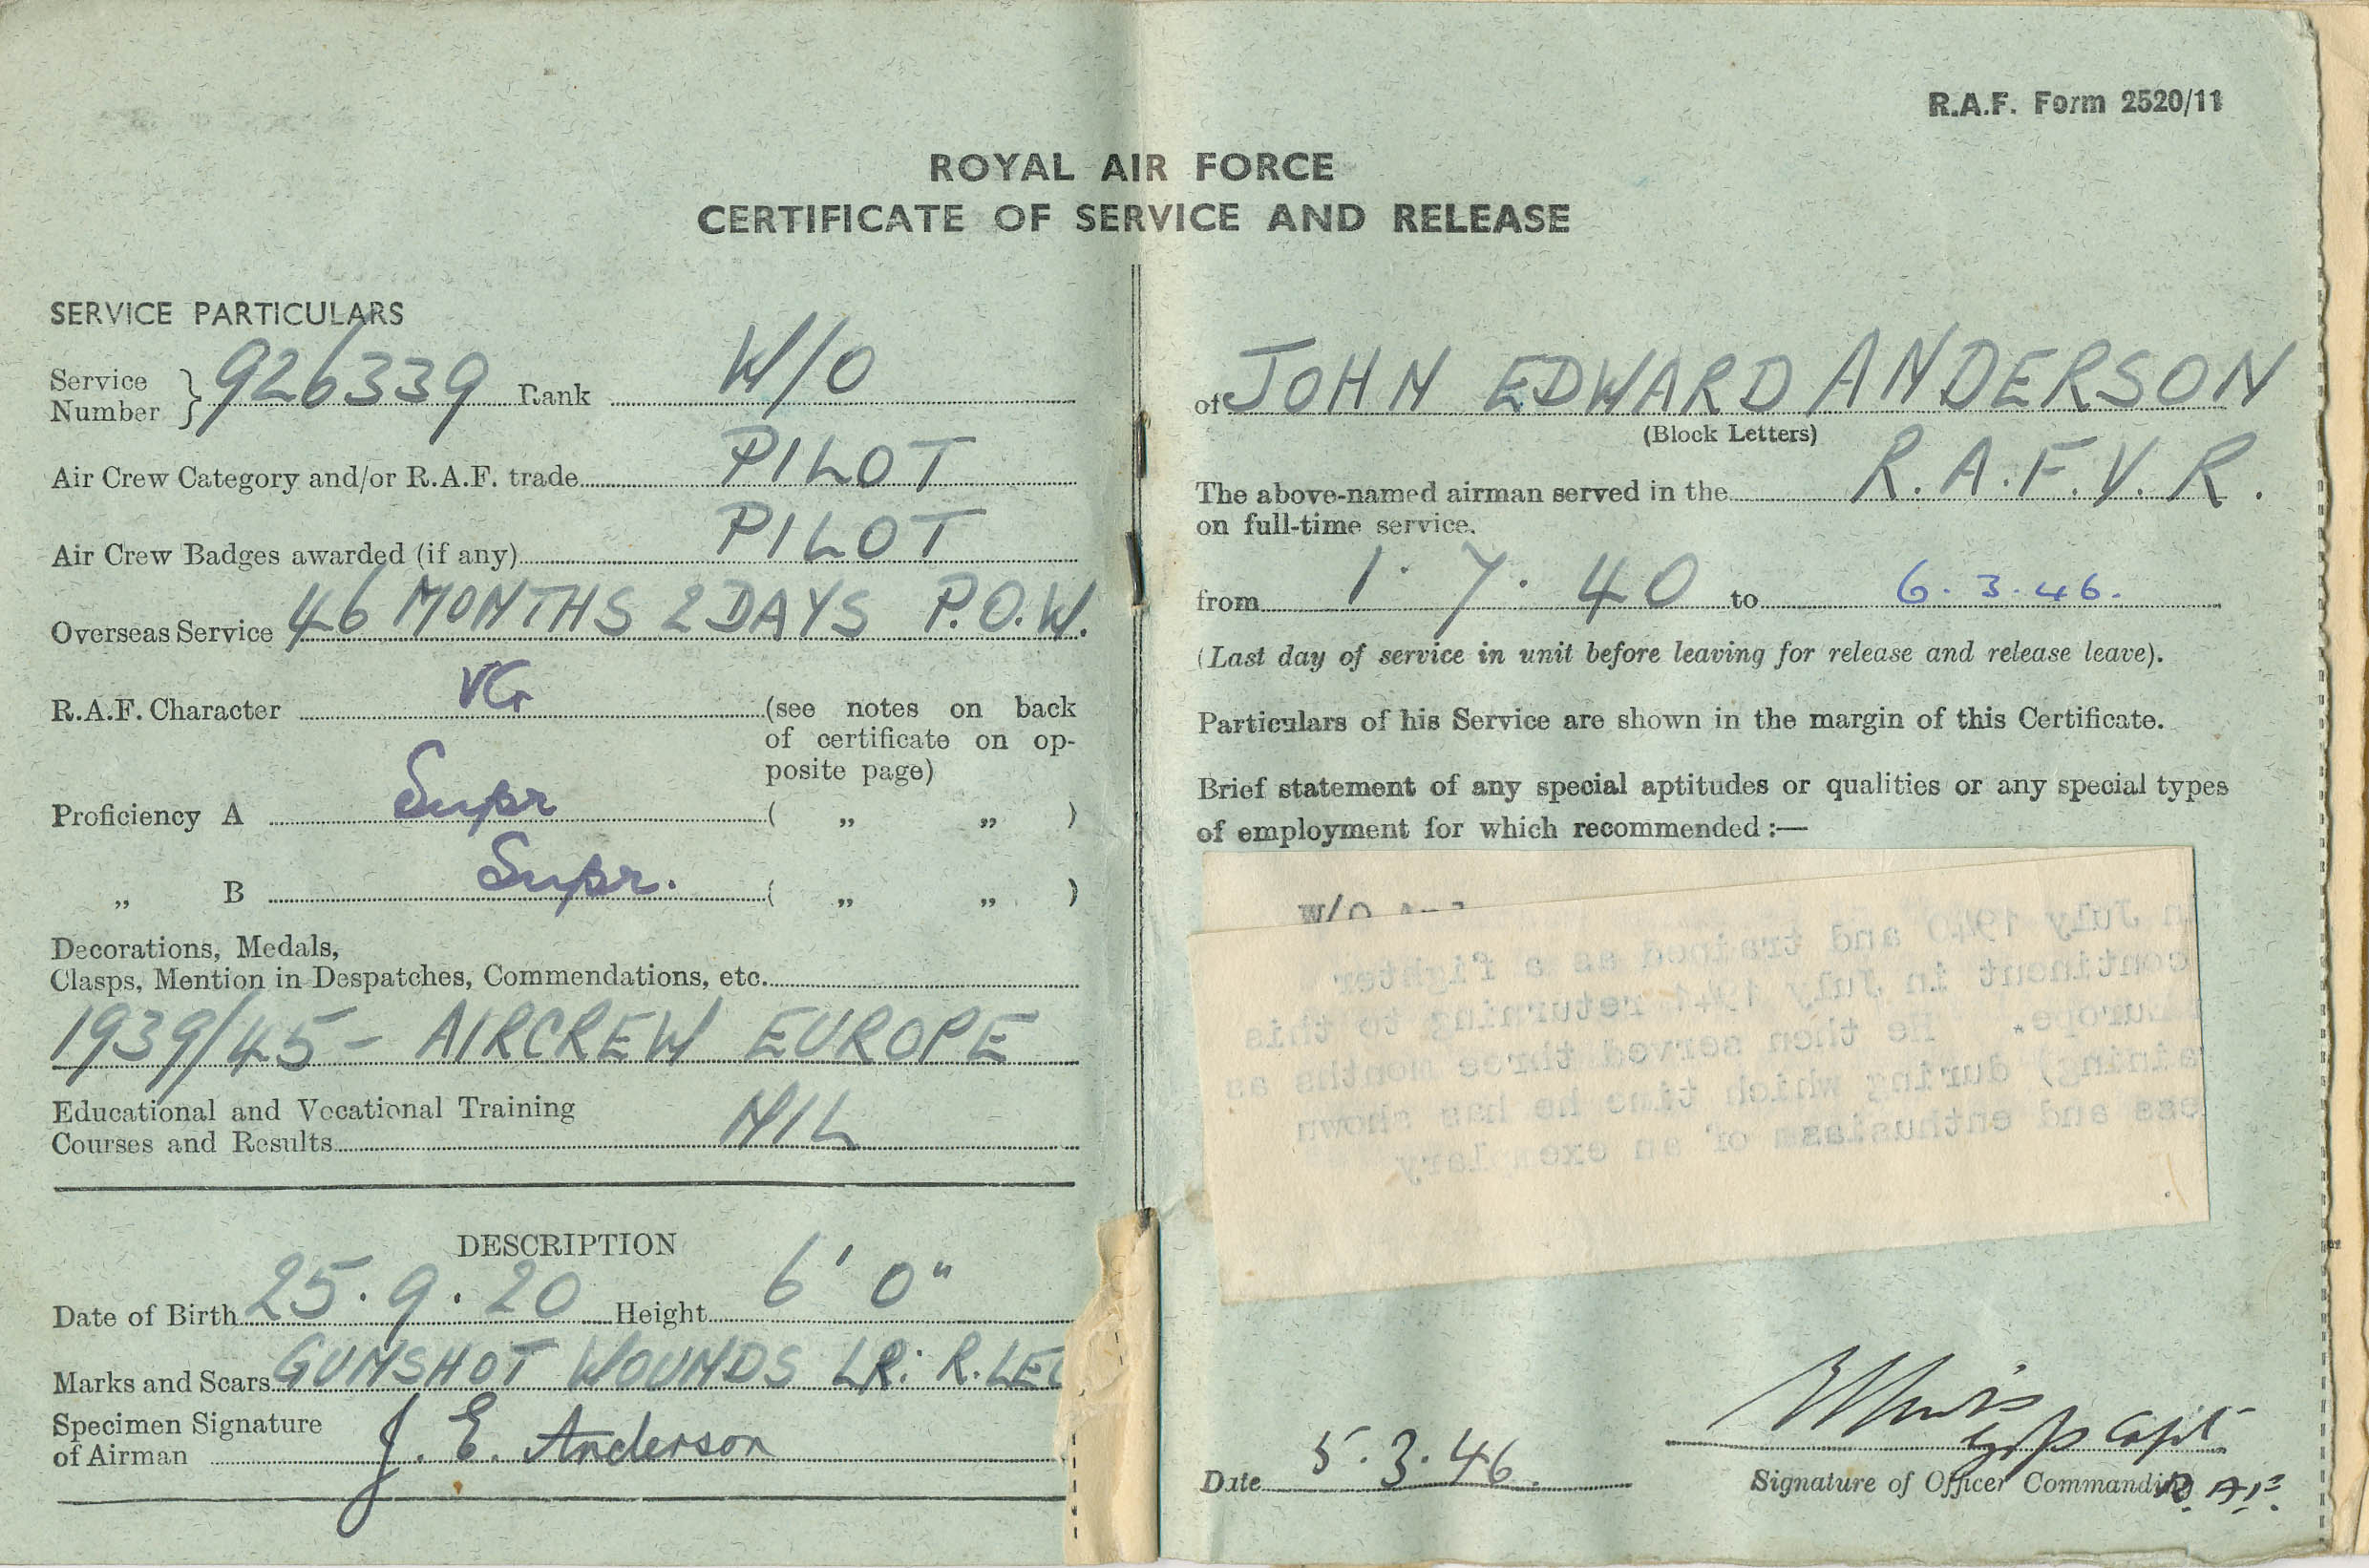 R.A.F. Form 2520/11
ROYAL AIR FORCE
CERTIFICATE OF SERVICE AND RELEASE
SERVICE PARTICULARS
Service Number } 926339 Rank W/O
Air Crew Category and/or R.A.F. trade PILOT
Air Crew Badges awarded (if any) PILOT
Overseas Service 46 MONTHS 2 DAYS P.O.W.
R.A.F. Character VG (see notes on back
of certificate on op-
posite page)
Proficiency A Supr ( „ „ )
„ B Supr. ( „ „ )
Decorations, Medals,
Clasps, Mention in Despatches, Commendations, etc.
1939/45 - AIRCREW EUROPE
Educational and Vocational Training
Courses and Results NIL
DESCRIPTION
Date of Birth 25.9.20 Height 6' 0"
Marks and Scars GUNSHOT WOUNDS LR: R. LEG
Specimen Signature
of Airman J. E. Anderson
of JOHN EDWARD ANDERSON
(Block Letters)
The above-named airman served in the R.A.F.V.R.
on full-time service.
from 1.7.40 to 6.3.46.
(Last day of service in unit before leaving for release and release leave).
Particulars of his Service are shown in the margin of this Certificate.
Brief statement of any special aptitudes or qualities or any special types
of employment for which recommended :—
W/O
n July 1940 and trained as a fighter
continent in July 1941 returning to this
Europe. He then served three months as
aining) during which time he has shown
ess and enthusiasm of an exemplary
Date 5.3.46.
Gp Capt
Signature of Officer Commanding
R.A.F.